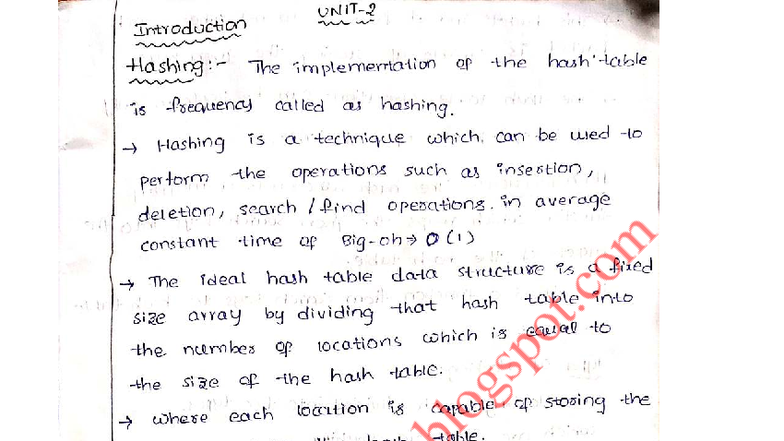 UNIT-2
Introduction
Hashing:- The implementation of the hash table
is frequency called as hashing.
→ Hashing is a technique which can be used to
perform the operations such as insertion,
deletion, search / find operations in average
constant time of Big-oh⇒ O(1)
→ The ideal hash table data structure is a fixed
size array by dividing that hash table into
the number of locations which is equal to
the size of the hash table.
→ where each location is capable of storing the
table.
blogspot.com